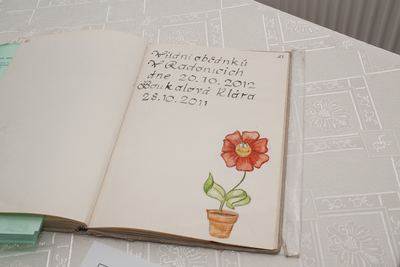 Vítání občánků
V Radonicích
dne 20.10.2012
Boukalová Klára
28.10.2011